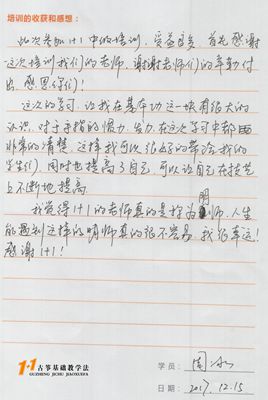 培训的收获和感想：
此次参加1+1中的培训，受益良多，首先感谢
这次培训我们的老师，谢谢老师们的辛勤付
出，感恩你们！
这次的学习，让我在基本功这一块有很大的
认识，对于手指的惯力、发力在这次学习中都
非常的清楚，这样我可以很好的带给我的
学生们，同时也提高了自己，可以让自己在技艺
上不断地提高
我觉得1+1的老师真的是称为明师，人生
能遇到这样的明师真的很不容易，我很幸运！
感谢1+1！
1+1古筝基础教学法
GUZHENG JICHU JIAOXUEFA
学员：周
日期：2017.12.15